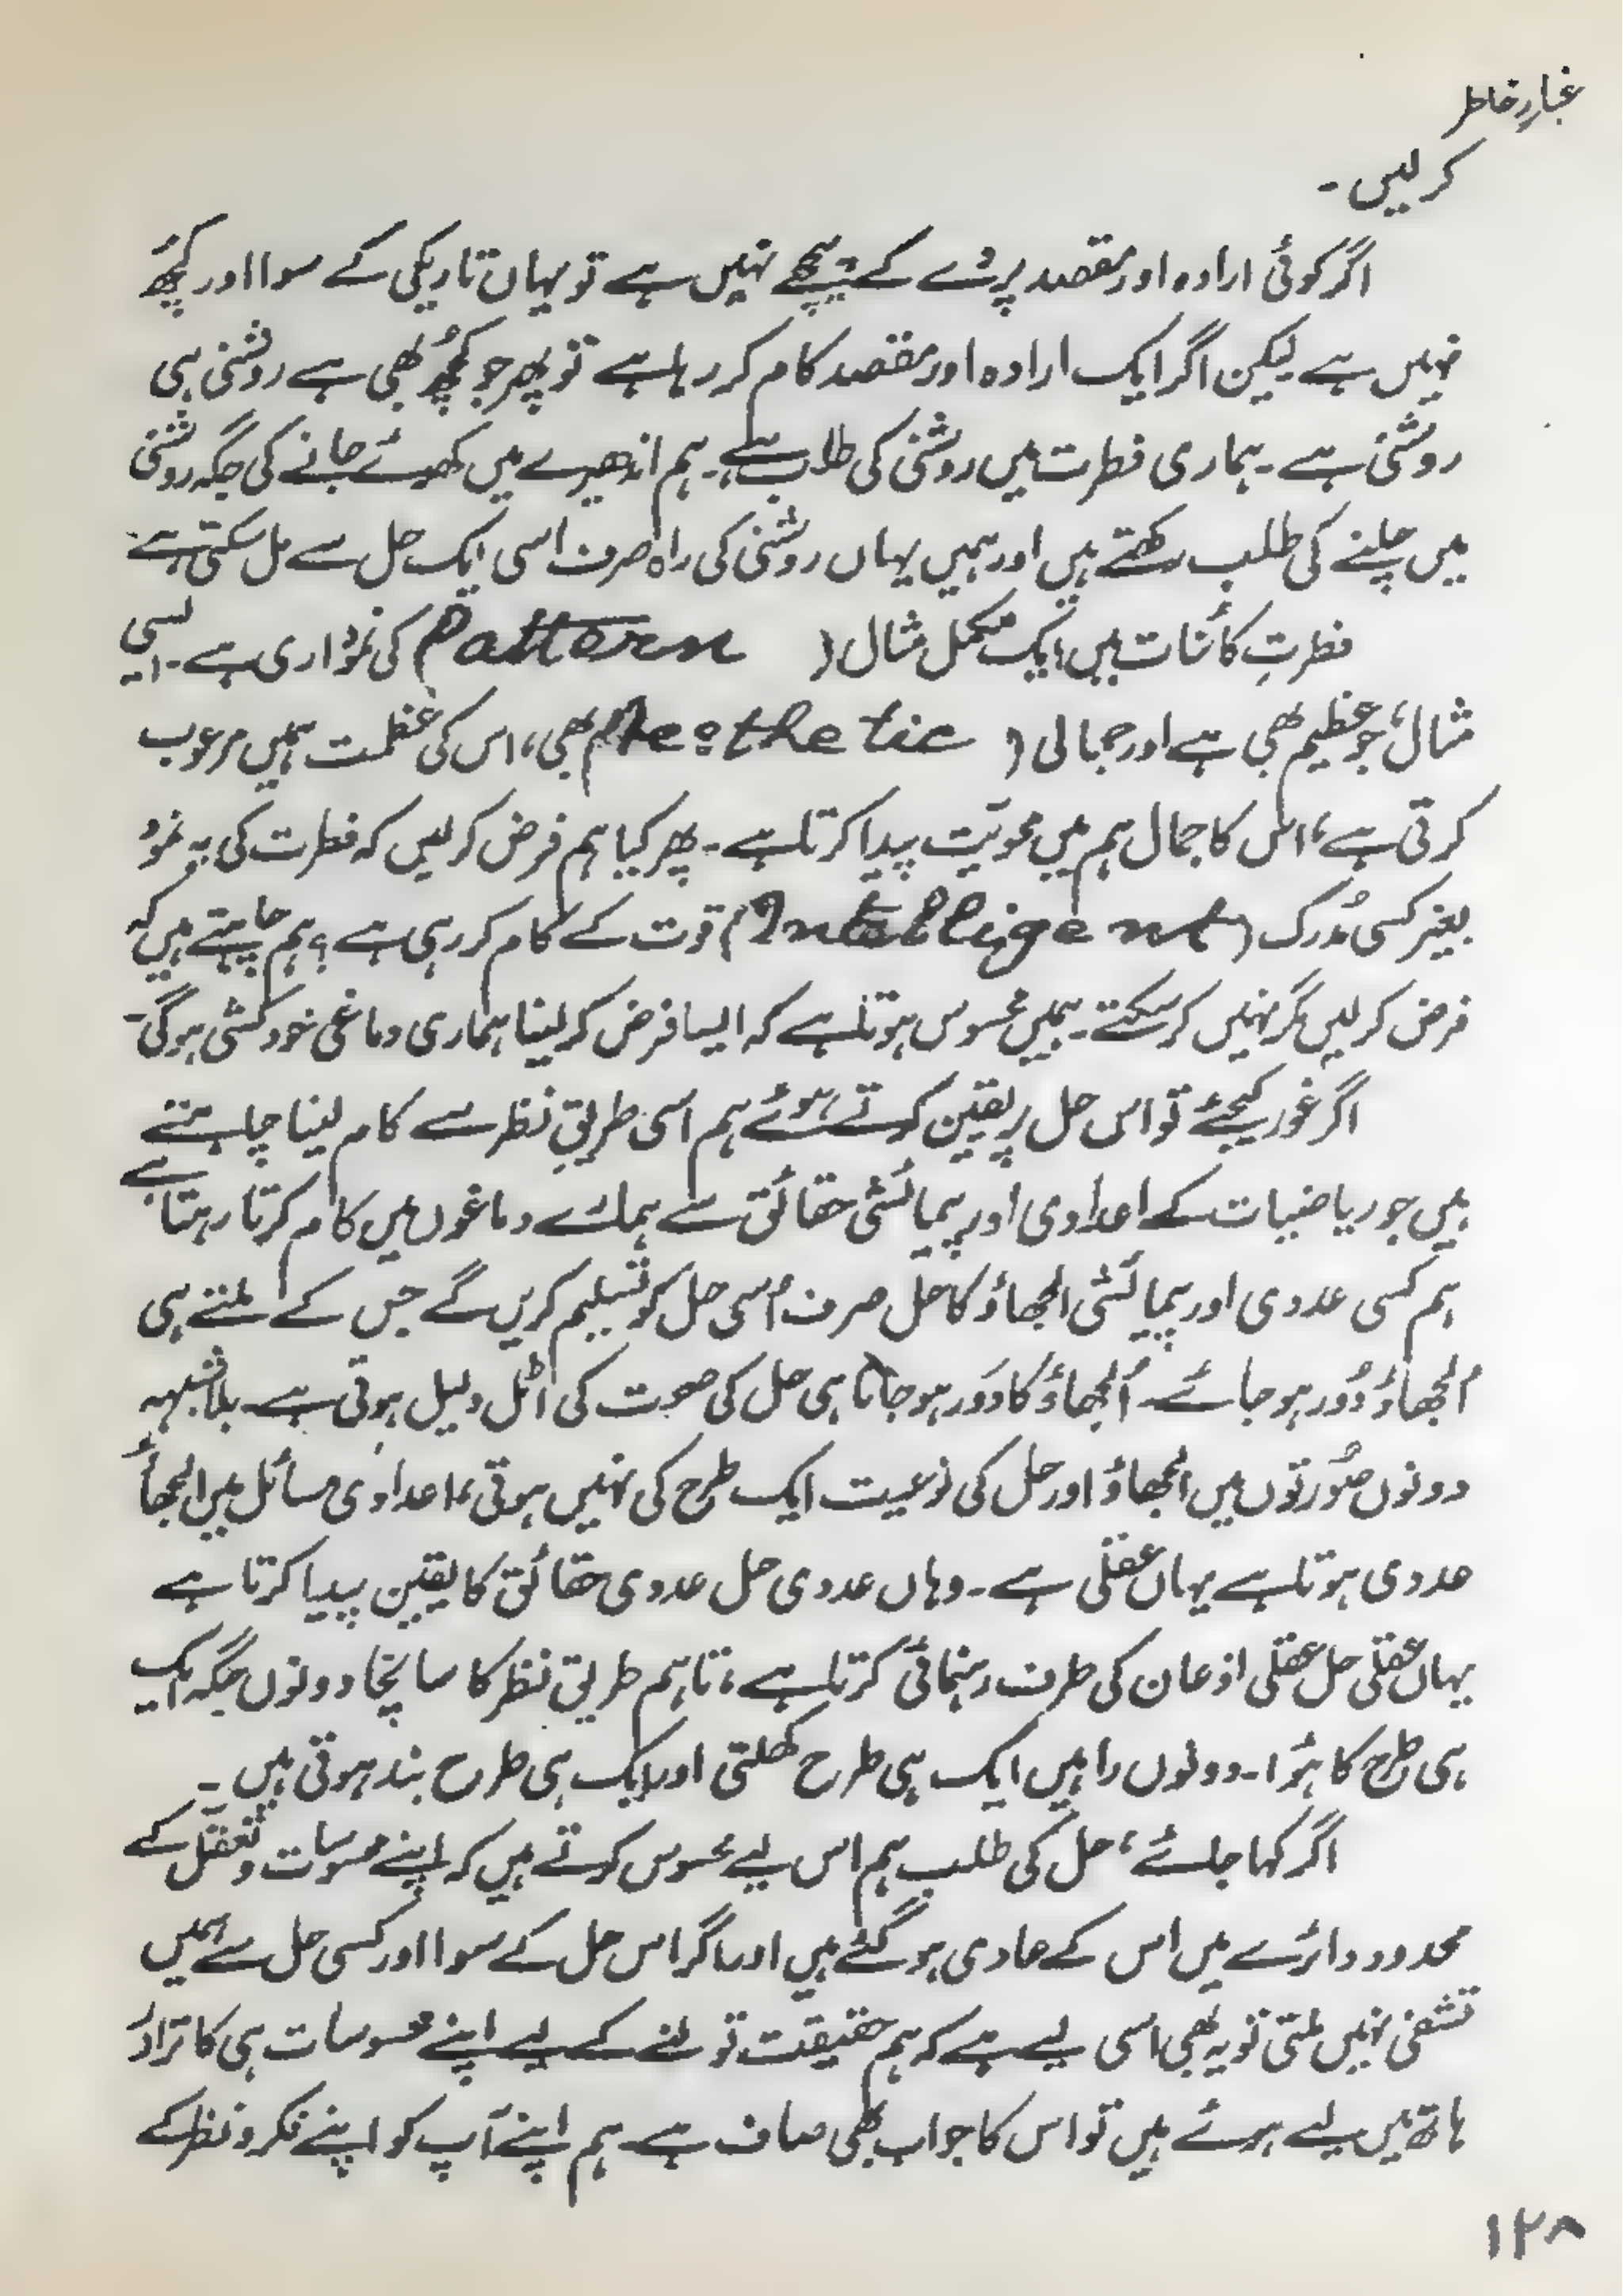 غبارِ خاطر
کر لیں ۔
اگر کوئی ارادہ اور مقصد پردے کے پیچھے نہیں ہے تو یہاں تاریکی کے سوا اور کچھ
نہیں ہے لیکن اگر ایک ارادہ اور مقصد کام کر رہا ہے تو پھر جو کچھ بھی ہے روشنی ہی
روشنی ہے ۔ ہماری فطرت میں روشنی کی طلب ہے ۔ ہم اندھیرے میں کھوئے جانے کی جگہ روشنی
میں چلنے کی طلب رکھتے ہیں اور ہمیں یہاں روشنی کی راہ صرف اسی ایک حل سے مل سکتی ہے
فطرتِ کائنات میں ایک مکمل مثال (Pattern) کی نموداری ہے ۔ ایسی
مثال، جو عظیم بھی ہے اور جمالی (Aesthetic) بھی، اس کی عظمت ہمیں مرعوب
کرتی ہے، اس کا جمال ہم میں محویّت پیدا کرتا ہے ۔ پھر کیا ہم فرض کر لیں کہ فطرت کی یہ نمود
بغیر کسی مُدرک (Intelligent) قوت کے کام کر رہی ہے ؟ ہم چاہتے ہیں کہ
فرض کر لیں مگر نہیں کر سکتے ۔ ہمیں محسوس ہوتا ہے کہ ایسا فرض کر لینا ہماری دماغی خودکشی ہوگی ۔
اگر غور کیجئے تو اس حل پر یقین کرتے ہوئے ہم اسی طریقِ نظر سے کام لینا چاہتے
ہیں جو ریاضیات کے اعدادی اور پیمائشی حقائق سے ہمارے دماغوں میں کام کرتا رہتا ہے
ہم کسی عددی اور پیمائشی الجھاؤ کا حل صرف اُسی حل کو تسلیم کریں گے جس کے ملتے ہی
اُلجھاؤ دُور ہو جائے ۔ اُلجھاؤ کا دُور ہو جانا ہی حل کی صحت کی اٹل دلیل ہوتی ہے ۔ بلاشبہہ
دونوں صُورتوں میں الجھاؤ اور حل کی نوعیت ایک طرح کی نہیں ہوتی، اعدادی مسائل میں الجھاؤ
عددی ہوتا ہے یہاں عقلی ہے ۔ وہاں عددی حل عددی حقائق کا یقین پیدا کرتا ہے
یہاں عقلی حل عقلی اذعان کی طرف رہنمائی کرتا ہے، تاہم طریقِ نظر کا سانچا دونوں جگہ ایک
ہی طرح کا ہُوا ۔ دونوں راہیں ایک ہی طرح کھلتی اور ایک ہی طرح بند ہوتی ہیں ۔
اگر کہا جائے، حل کی طلب ہم اس لیے محسوس کرتے ہیں کہ اپنے محسوسات و تعقّل کے
محدود دائرے میں اس کے عادی ہو گئے ہیں اور اگر اس حل کے سوا اور کسی حل سے ہمیں
تشفی نہیں ملتی تو یہ بھی اسی لیے ہے کہ ہم حقیقت تولنے کے لیے اپنے محسوسات ہی کا ترازو
ہاتھ میں لیے ہوئے ہیں تو اس کا جواب بھی صاف ہے ۔ ہم اپنے آپ کو اپنے فکر و نظر کے
۱۲۸